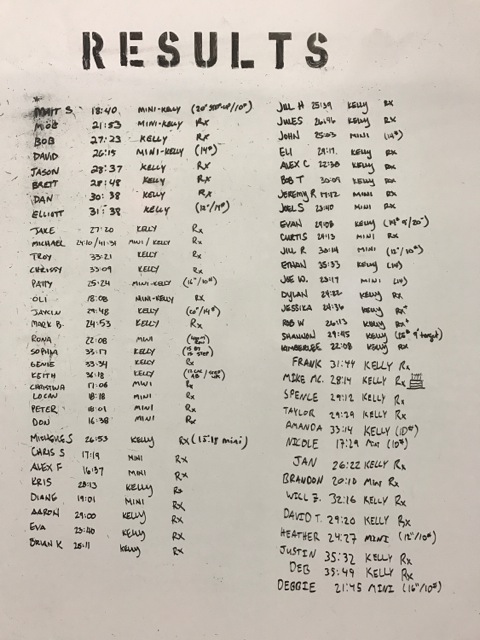 RESULTS
MATT S 18:40 MINI-KELLY (20" STEP-UP/10#)
MOE 21:53 MINI-KELLY Rx
BOB 27:23 KELLY Rx
DAVID 26:15 MINI-KELLY (14#)
JASON 28:37 KELLY Rx
BRETT 28:48 KELLY Rx
DAN 30:38 KELLY Rx
ELLIOTT 31:38 KELLY (12"/14#)
JAKE 27:20 KELLY Rx
MICHAEL 24:10/41:31 MINI/KELLY Rx
TROY 33:21 KELLY Rx
CHRISSY 33:09 KELLY Rx
PATTY 25:24 MINI-KELLY (16"/10#)
OLI 18:08 MINI-KELLY Rx
JAYLIN 29:48 KELLY (20"/14#)
MARK B. 24:53 KELLY Rx
RONA 22:08 MINI
SOPHIA 33:17 KELLY
GENIE 33:34 KELLY
KEITH 36:18 KELLY
CHRISTINA 17:06 MINI Rx
LOGAN 18:18 MINI Rx
PETER 18:01 MINI Rx
DON 16:38 MINI Rx
MICHELLE S 26:53 KELLY Rx (15:18 mini)
CHRIS S 17:19 MINI Rx
ALEX F 16:37 MINI Rx
KRIS 28:13 KELLY Rx
DIANE 19:01 MINI Rx
AARON 29:00 KELLY Rx
EVA 25:40 KELLY Rx
BRIAN K 25:11 KELLY Rx
JILL H 25:39 KELLY Rx
JULES 26:46 KELLY Rx
JOHN 25:03 MINI (14#)
ELI 29:17 KELLY Rx
ALEX C 22:38 KELLY Rx
BOB T 30:09 KELLY Rx
JEREMY R 17:12 MINI Rx
JOEL S 23:40 MINI Rx
EVAN 29:08 KELLY
CURTIS 29:13 MINI Rx
JILL R 30:14 MINI (12"/10#)
ETHAN 35:33 KELLY
JOE W. 23:17 MINI
DYLAN 24:22 KELLY Rx
JESSIKA 24:36 KELLY Rx
ROB W 26:13 KELLY Rx
SHANNON 29:45 KELLY
KIMBERLEE 22:08 KELLY Rx
FRANK 31:44 KELLY Rx
MIKE MC. 28:14 KELLY Rx
SPENCE 29:12 KELLY Rx
TAYLOR 29:29 KELLY Rx
AMANDA 33:14 KELLY (10#)
NICOLE 17:29 MINI (10#)
JAN 26:22 KELLY Rx
BRANDON 20:10 MINI Rx
WILL F. 32:16 KELLY Rx
DAVID T. 29:20 KELLY Rx
HEATHER 24:27 MINI (12"/10#)
JUSTIN 35:32 KELLY Rx
DEB 35:49 KELLY Rx
DEGGIE 21:45 MINI (16"/10#)